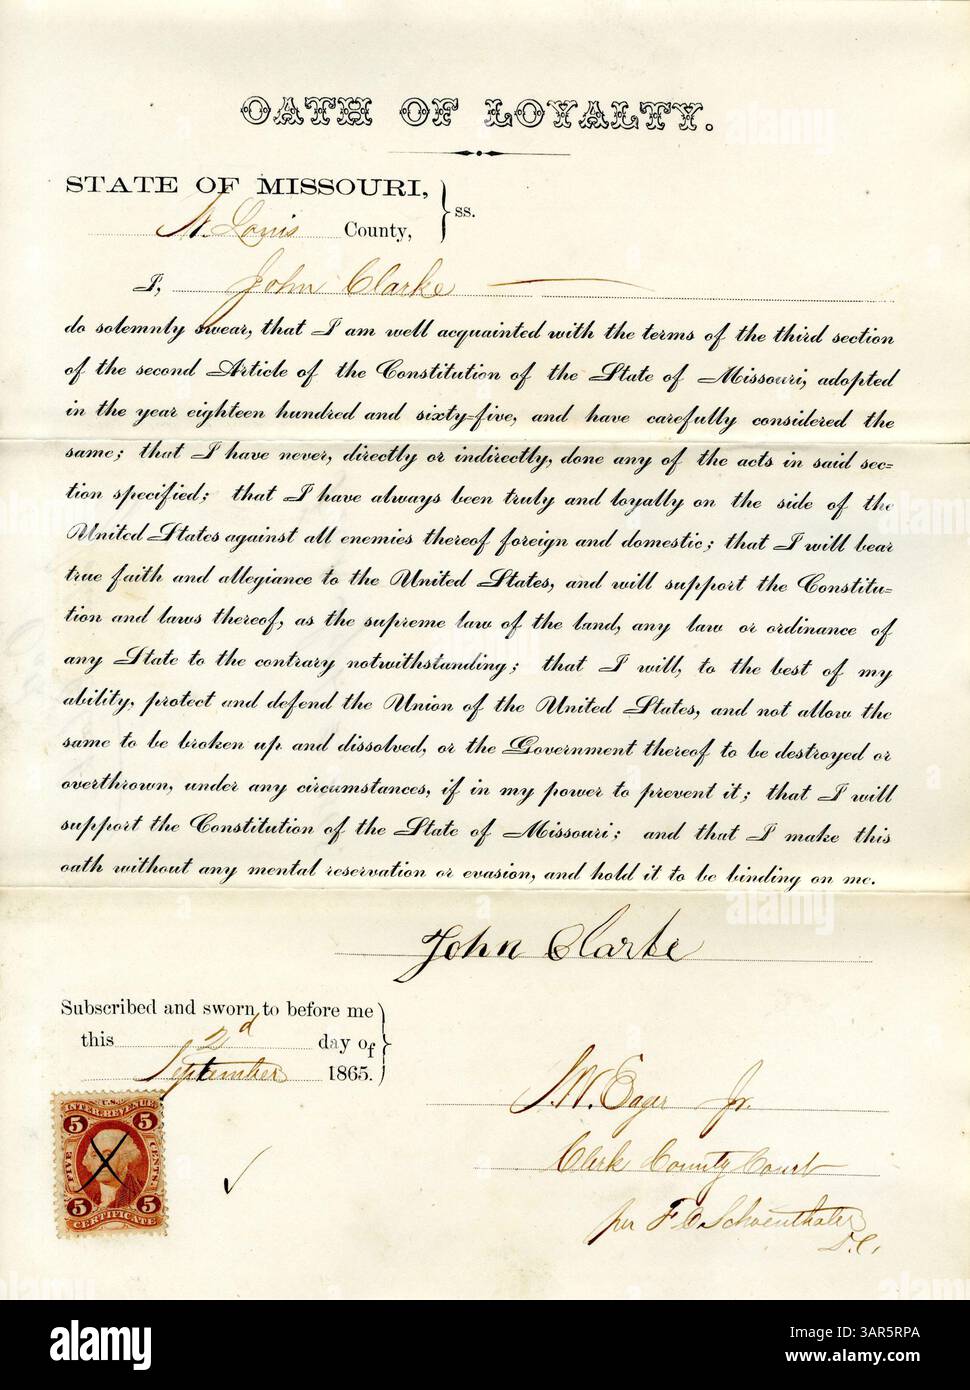 OATH OF LOYALTY.
STATE OF MISSOURI,
St. Louis County, ss.
I, John Clarke
do solemnly swear, that I am well acquainted with the terms of the third section
of the second Article of the Constitution of the State of Missouri, adopted
in the year eighteen hundred and sixty-five, and have carefully considered the
same; that I have never, directly or indirectly, done any of the acts in said sec-
tion specified; that I have always been truly and loyally on the side of the
United States against all enemies thereof foreign and domestic; that I will bear
true faith and allegiance to the United States, and will support the Constitu-
tion and laws thereof, as the supreme law of the land, any law or ordinance of
any State to the contrary notwithstanding; that I will, to the best of my
ability, protect and defend the Union of the United States, and not allow the
same to be broken up and dissolved, or the Government thereof to be destroyed or
overthrown, under any circumstances, if in my power to prevent it; that I will
support the Constitution of the State of Missouri; and that I make this
oath without any mental reservation or evasion, and hold it to be binding on me.
John Clarke
Subscribed and sworn to before me
this 2d day of
September 1865.
U.S.
INTER. REVENUE
5 5
FIVE CENTS
5 5
CERTIFICATE
X
S.W. Eager Jr.
Clerk County Court
per F C Schoenthaler
D.C.
alamy
Image ID: 3AR5RPA
www.alamy.com